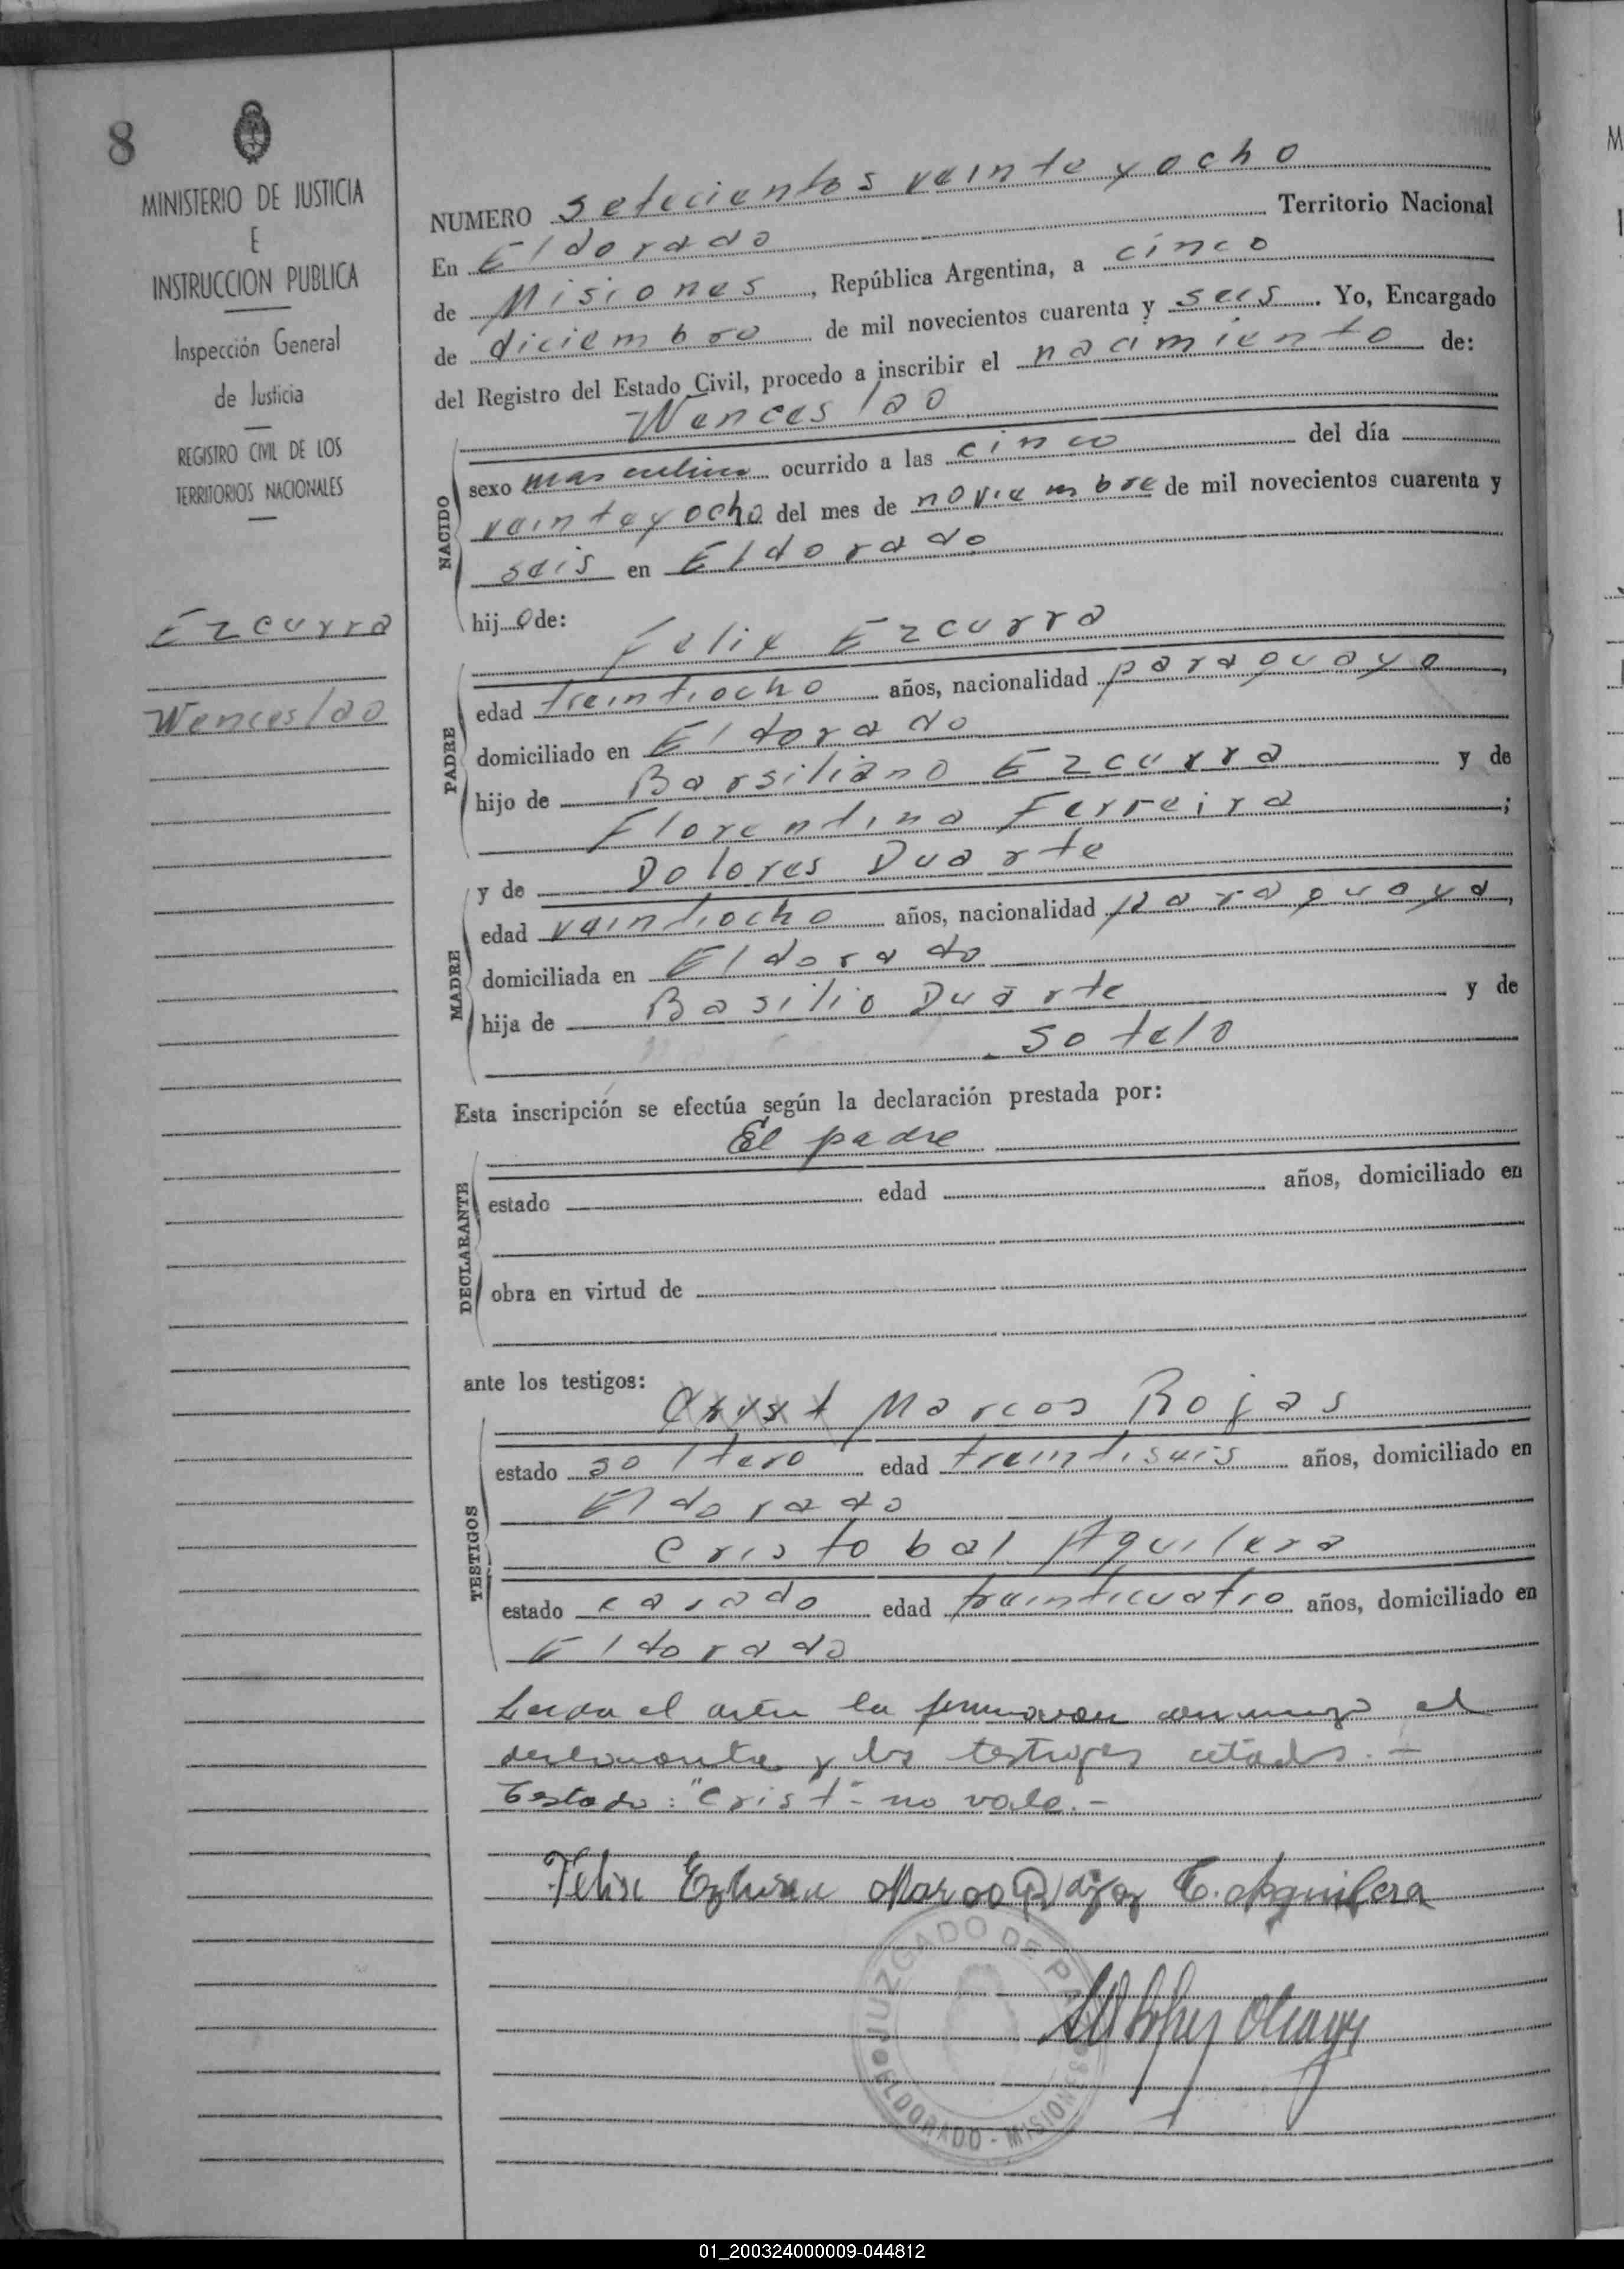 8
MINISTERIO DE JUSTICIA
E
INSTRUCCION PUBLICA
Inspección General
de Justicia
REGISTRO CIVIL DE LOS
TERRITORIOS NACIONALES
Ezcurra
Wenceslao
NUMERO setecientos veinte y ocho
En Eldorado Territorio Nacional
de Misiones, República Argentina, a cinco
de diciembre de mil novecientos cuarenta y seis. Yo, Encargado
del Registro del Estado Civil, procedo a inscribir el nacimiento de:
Wenceslao
NACIDO
sexo masculino ocurrido a las cinco del día
veinte y ocho del mes de noviembre de mil novecientos cuarenta y
seis en Eldorado
hijo de:
Felix Ezcurra
PADRE
edad treintiocho años, nacionalidad paraguayo,
domiciliado en Eldorado
hijo de Barsiliano Ezcurra y de
Florentina Ferreira;
y de Dolores Duarte
MADRE
edad veintiocho años, nacionalidad paraguaya,
domiciliada en Eldorado
hija de Basilio Duarte y de
Sotelo
Esta inscripción se efectúa según la declaración prestada por:
El padre
DECLARANTE
estado edad años, domiciliado en
obra en virtud de
ante los testigos:
Marcos Rojas
TESTIGOS
estado soltero edad treintiseis años, domiciliado en
Eldorado
Cristobal Aguilera
estado casado edad treinticuatro años, domiciliado en
Eldorado
Leida el acta la firmaron conmigo el
declarante y los testigos citados.-
Testado: "Crist"- no vale.-
Felix Marcos Rojas C. Aguilera
JUZGADO DE PAZ
ELDORADO - MISIONES
01_200324000009-044812